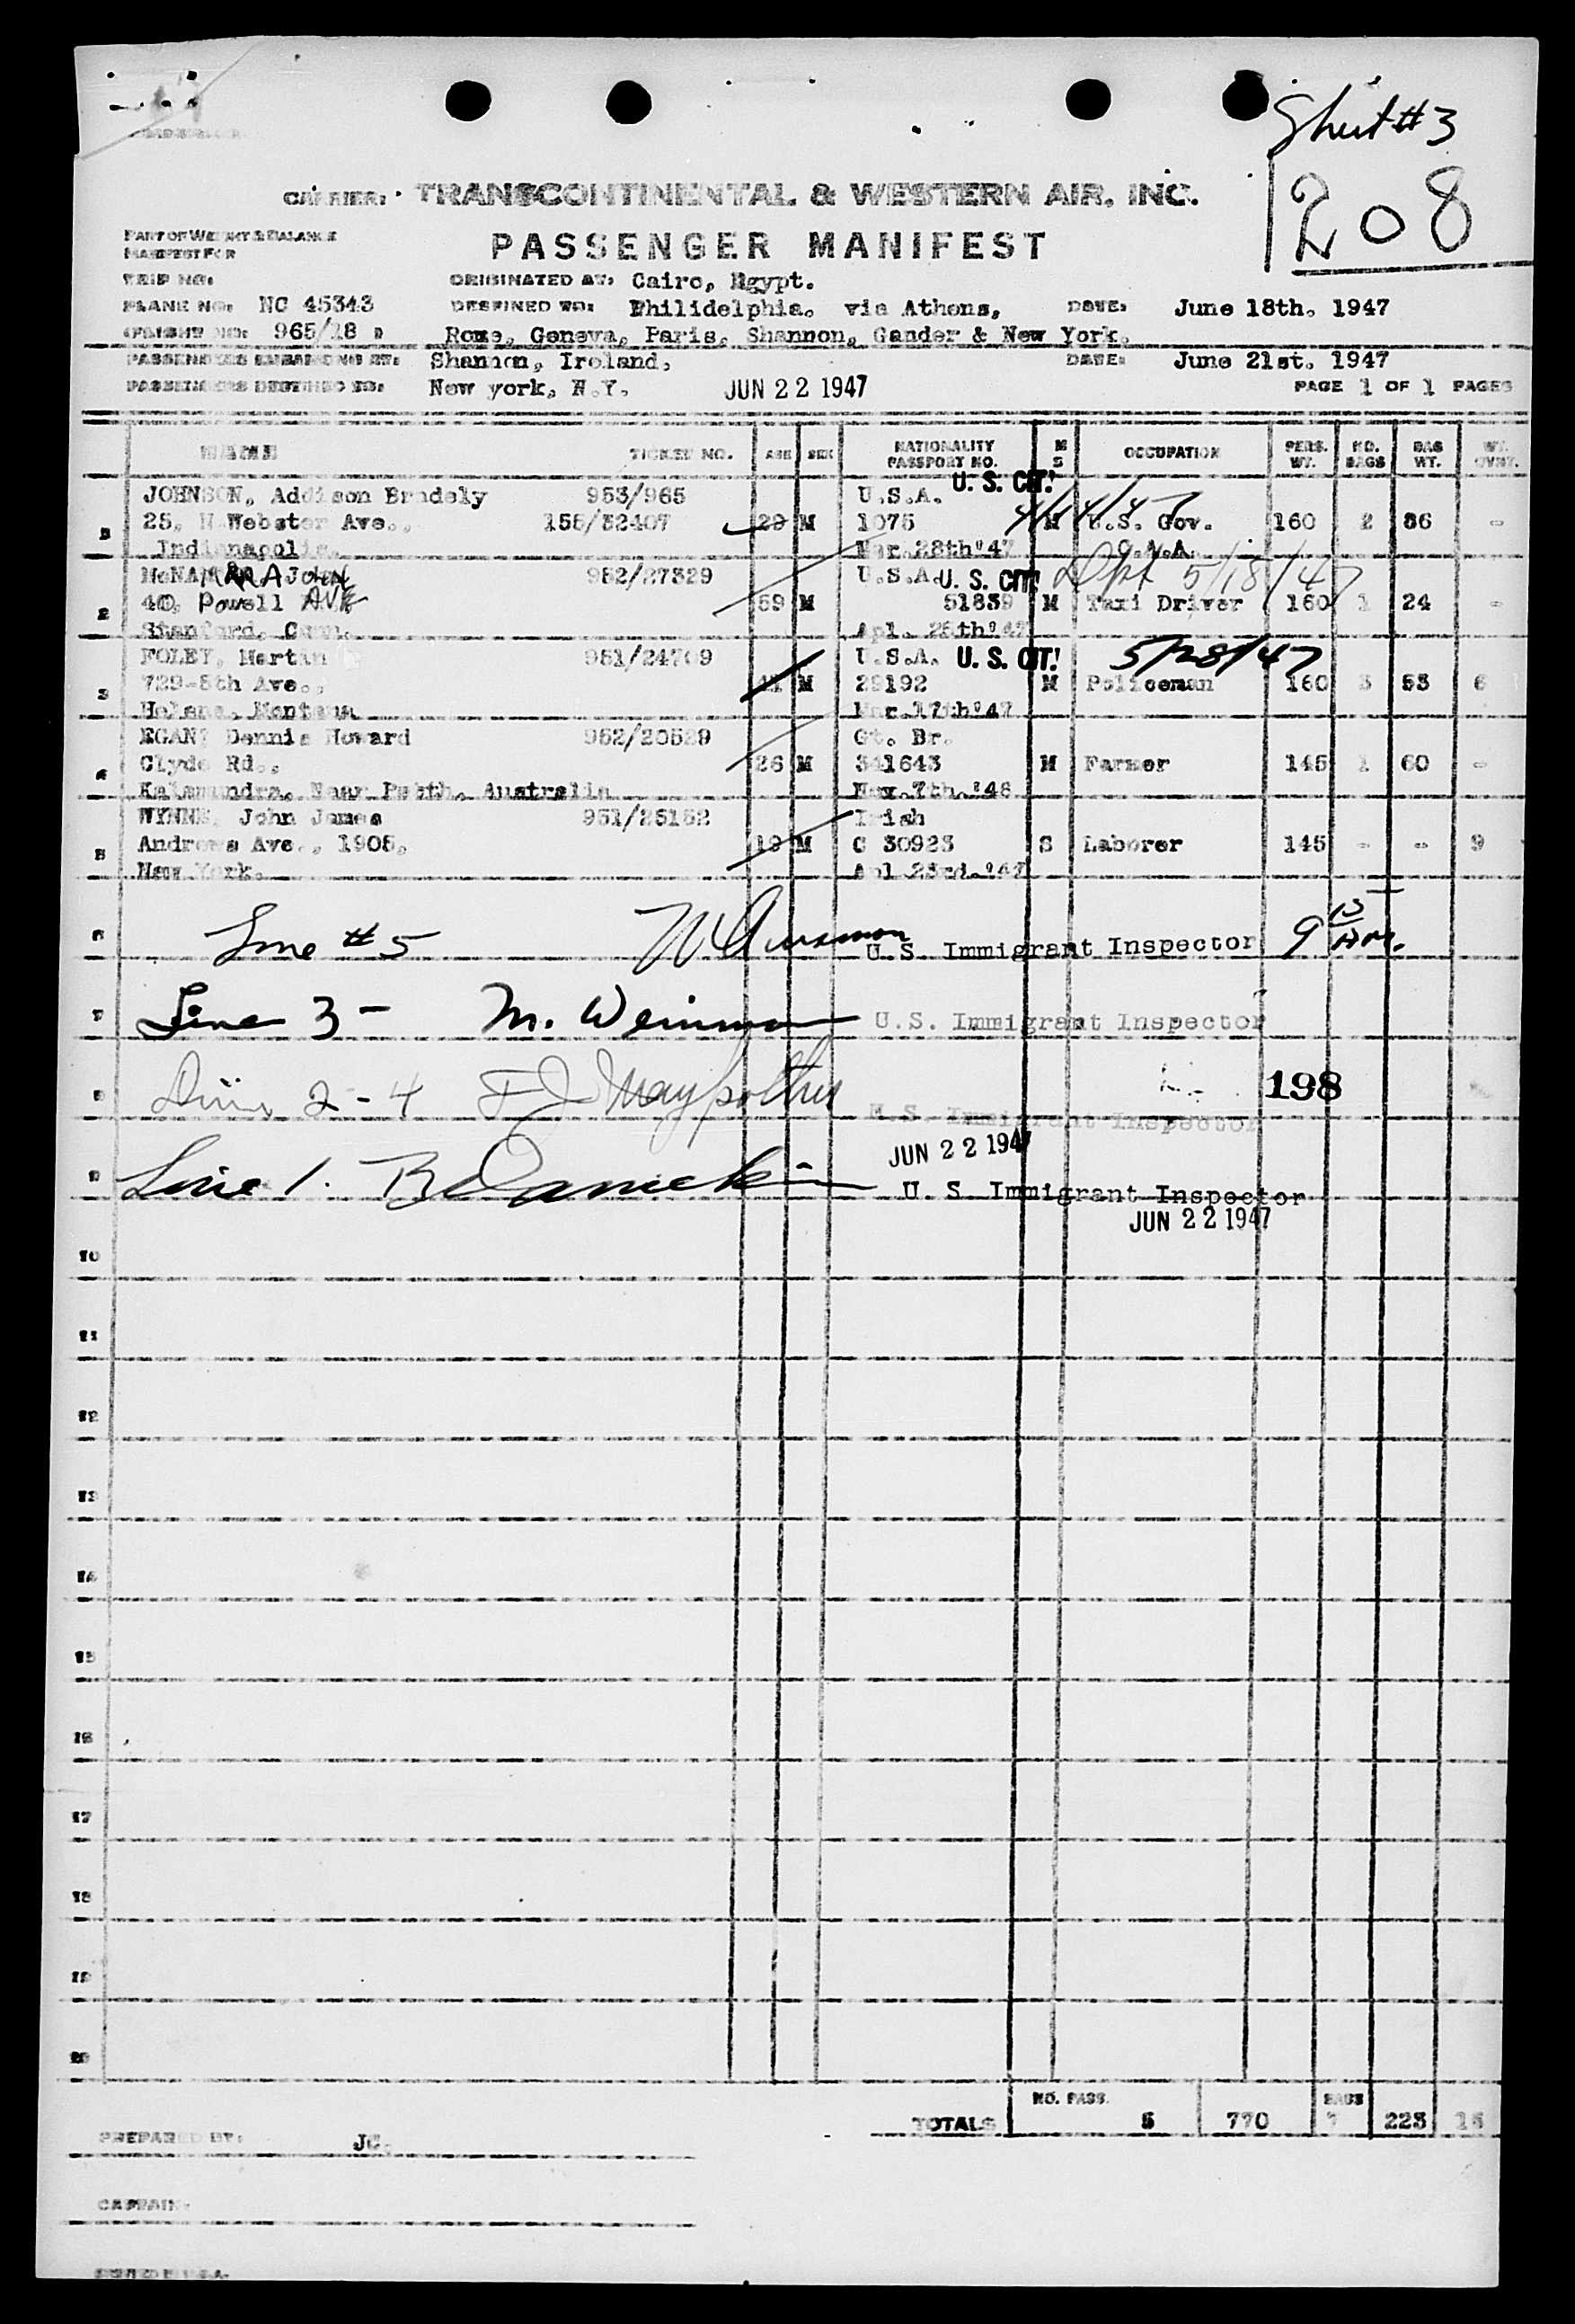 Sheet #3
208
CARRIER: TRANSCONTINENTAL & WESTERN AIR, INC.
PART OF WEIGHT & BALANCE
MANIFEST FOR
PASSENGER MANIFEST
TRIP NO: ORIGINATED AT: Cairo, Egypt.
PLANE NO: NC 45343 DESTINED TO: Philidelphia. via Athens, DATE: June 18th. 1947
FLIGHT NO: 965/18 Rome, Geneva, Paris, Shannon, Gander & New York.
PASSENGERS EMBARKING AT: Shannon, Ireland, DATE: June 21st. 1947
PASSENGERS DESTINED TO: New york, N.Y. JUN 22 1947 PAGE 1 OF 1 PAGES
NAME TICKET NO. AGE SEX NATIONALITY PASSPORT NO. M S OCCUPATION PERS. WT. NO. BAGS BAG WT. WT. OVWT.
JOHNSON, Addison Bradely 953/965 U.S.A. U. S. CIT!
1 25, N Webster Ave., 155/32407 29 M 1075 M U.S. Gov. 160 2 86 -
Indianapolis. Mar. 28th'47 4/14/47
McNAMARA JOHN 952/27329 U.S.A. U. S. CIT! Dpt 5/18/47
2 40, Powell AVE 59 M 51839 M Taxi Driver 160 1 24 -
Stanford, Conn. Apl. 25th'47
FOLEY, Martin 951/24709 U.S.A. U. S. CIT! 5/28/47
3 729-8th Ave., 41 M 29192 M Policeman 160 3 53 6
Helena, Montana Mar.17th'47
EGAN, Dennis Howard 952/20529 Gt. Br.
4 Clyde Rd., 26 M 341643 M Farmer 145 1 60 -
Kalamundra, Near Perth, Australia Nov.7th.'46
WYNNE, John James 951/25152 Irish
5 Andrews Ave., 1905, 19 M C 30923 S Laborer 145 - - 9
New York. Apl 23rd.'47
6 Line #5 U.S. Immigrant Inspector 9 15 AM.
7 Line 3 - M. Weinman U.S. Immigrant Inspector
8 2-4 198
U.S. Immigrant Inspector
JUN 22 1947
9 Line 1. U. S. Immigrant Inspector
JUN 22 1947
10
11
12
13
14
15
16
17
18
19
20
NO. PASS. BAGS
TOTALS 5 770 7 223 15
PREPARED BY: JC.
CAPTAIN:
PRINTED IN U.S.A.